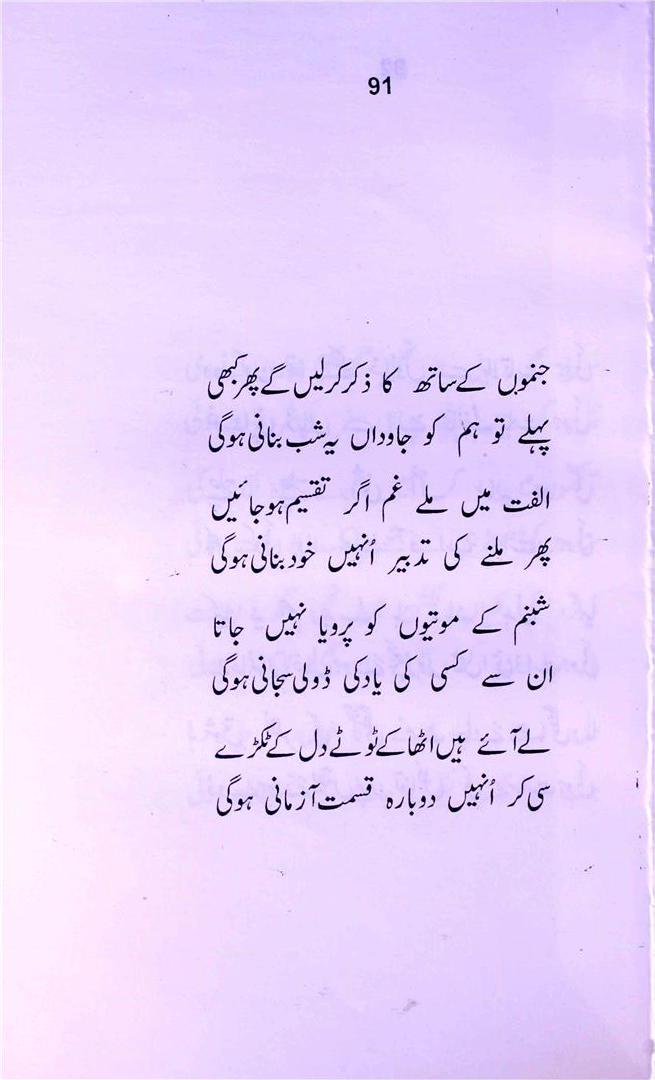 91
جنموں کے ساتھ کا ذکر کر لیں گے پھر کبھی
پہلے تو ہم کو جاوداں یہ شب بنانی ہوگی
الفت میں ملے غم اگر تقسیم ہو جائیں
پھر ملنے کی تدبیر اُنہیں خود بنانی ہوگی
شبنم کے موتیوں کو پرویا نہیں جاتا
ان سے کسی کی یاد کی ڈولی سجانی ہوگی
لے آئے ہیں اٹھا کے ٹوٹے دل کے ٹکڑے
سی کر اُنہیں دوبارہ قسمت آزمانی ہوگی